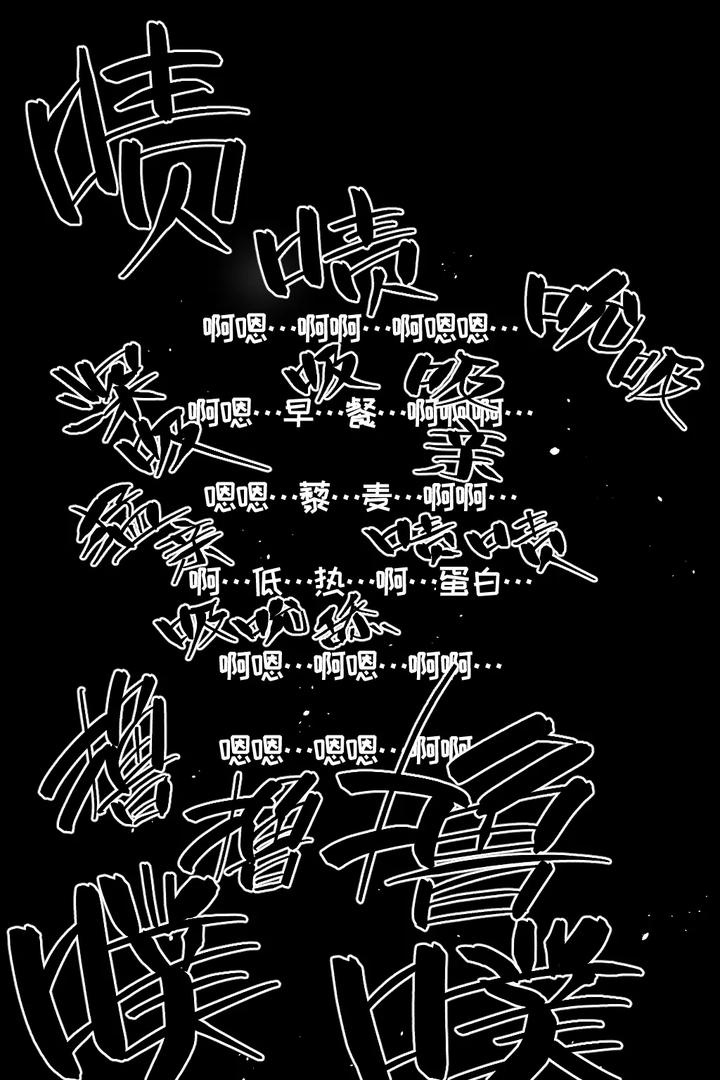 啧
啧
吮吸
啊嗯…啊啊…啊嗯嗯…
吸 吸
深吸
啊嗯…早…餐…啊啊啊…
亲
嗯嗯…藜…麦…啊啊…
亲
啧啧
啊…低…热…啊…蛋白…
吸吮舔
啊嗯…啊嗯…啊啊…
嗯嗯…嗯嗯…啊啊
撸
撸
撸
噗
噗